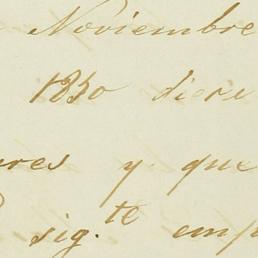 Noviembre
1830 diere
res y que
sig.te emp